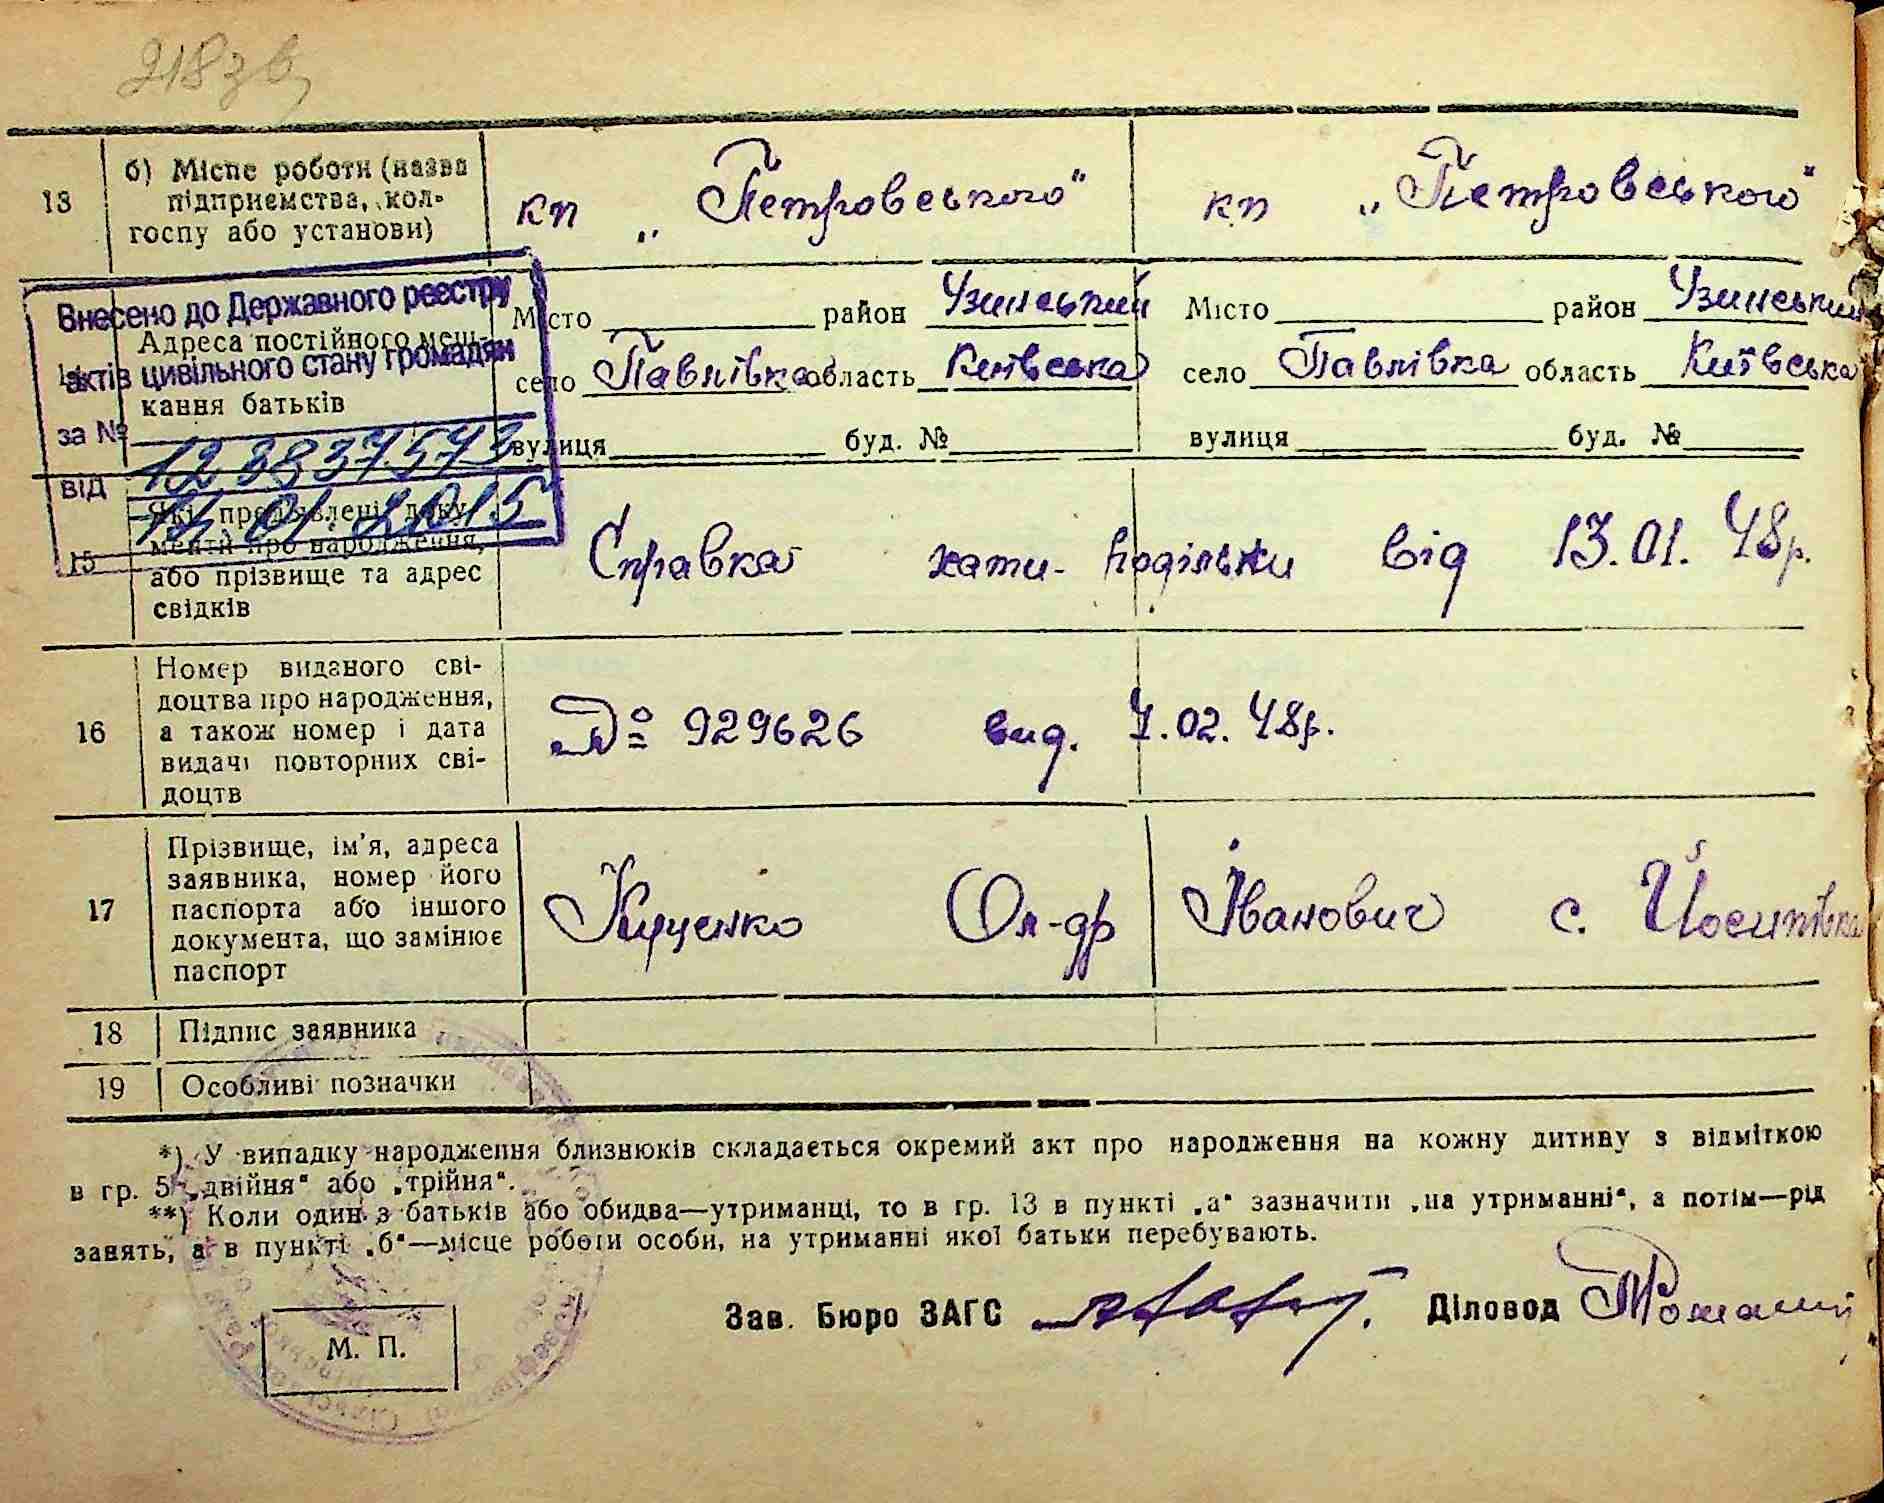 218 зв
13
б) Місце роботи (назва
підприємства, кол-
госпу або установи)
кп „Петровського“
кп „Петровського“
Внесено до Державного реєстру
актів цивільного стану громадян
за № 12883757
від 01 2015
Адреса постійного меш-
кання батьків
Місто район Узинський
село Павлівка область Київська
вулиця буд. №
Місто район Узинський
село Павлівка область Київська
вулиця буд. №
15
Які пред'явлені доку-
менти про народження,
або прізвище та адрес
свідків
Справка хати- від 13.01.48р.
16
Номер виданого сві-
доцтва про народження,
а також номер і дата
видачі повторних сві-
доцтв
№ 929626 вид. 7.02.48р.
17
Прізвище, ім'я, адреса
заявника, номер його
паспорта або іншого
документа, що замінює
паспорт
Куценко Ол-др Іванович с. Йосипівка
18 Підпис заявника
19 Особливі позначки
*) У випадку народження близнюків складається окремий акт про народження на кожну дитину з відміткою
в гр. 5 „двійня“ або „трійня“.
**) Коли один з батьків або обидва—утриманці, то в гр. 13 в пункті „а“ зазначити „на утриманні“, а потім—рід
занять, а в пункті „б“—місце роботи особи, на утриманні якої батьки перебувають.
Зав. Бюро ЗАГС Діловод
М. П.